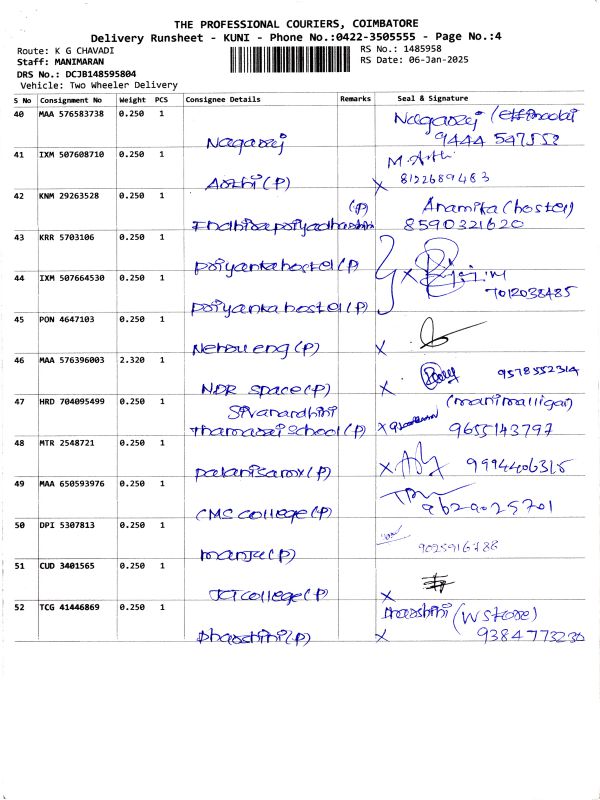 THE PROFESSIONAL COURIERS, COIMBATORE
Delivery Runsheet - KUNI - Phone No.:0422-3505555 - Page No.:4
Route: K G CHAVADI RS No.: 1485958
Staff: MANIMARAN RS Date: 06-Jan-2025
DRS No.: DCJB148595804
Vehicle: Two Wheeler Delivery
S No Consignment No Weight PCS Consignee Details Remarks Seal & Signature
40 MAA 576583738 0.250 1
Nagaraj Nagaraj
9444 547558
41 IXM 507608710 0.250 1 M. Arthi
Arthi (P) X 8122689483
42 KNM 29263528 0.250 1 (P) Anamika (hostel)
8590321620
43 KRR 5703106 0.250 1
Priyanka hostel (P) X
44 IXM 507664530 0.250 1 7012038485
Priyanka hostel (P)
45 PON 4647103 0.250 1
Nehru eng (P) X
46 MAA 576396003 2.320 1 9578552314
NDR space (P) X
47 HRD 704095499 0.250 1 Sivanandhini (manimalligai)
Thamarai School (P) X 9655143797
48 MTR 2548721 0.250 1
Palanisamy (P) X 9994406315
49 MAA 650593976 0.250 1
CMS College (P) 9629025701
50 DPI 5307813 0.250 1
Manju (P) 9025916788
51 CUD 3401565 0.250 1
JCT College (P) X
52 TCG 41446869 0.250 1 Dharshini (W Store)
Dharshini (P) X 9384773230